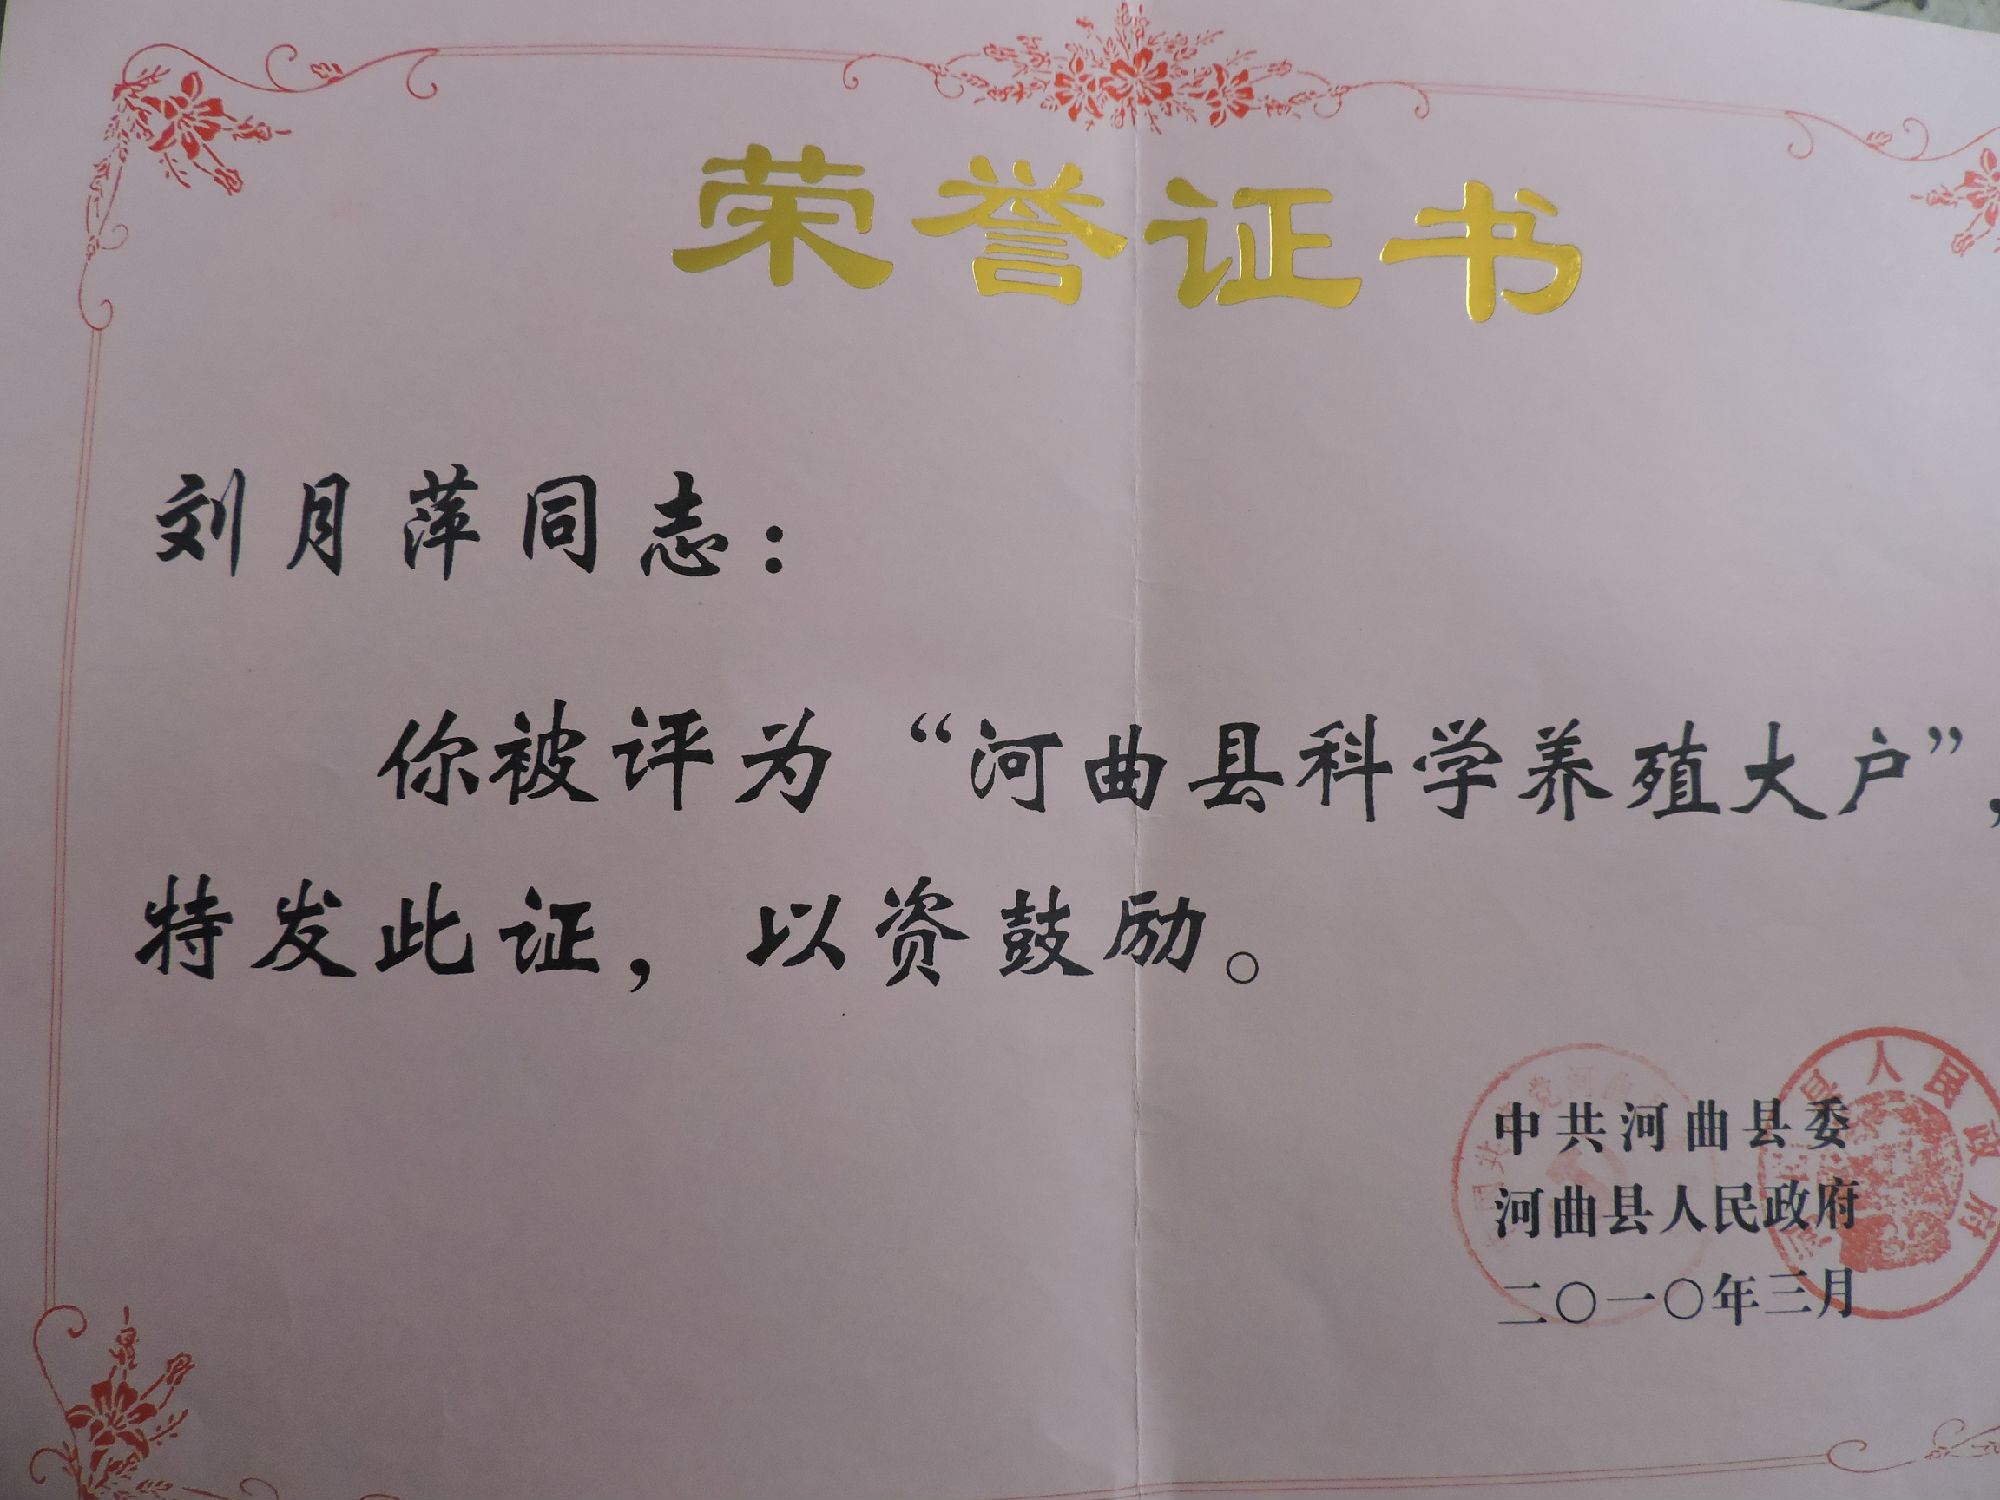 荣誉证书
刘月萍同志：
你被评为“河曲县科学养殖大户”，
特发此证，以资鼓励。
中共河曲县委
河曲县人民政府
二〇一〇年三月
县人民政府
党河曲